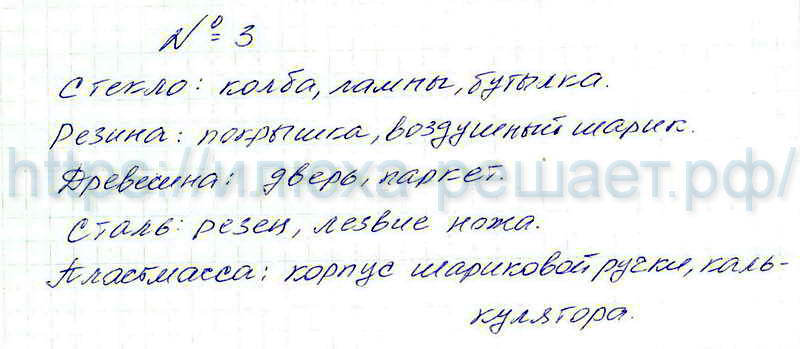 № 3
Стекло: колба, лампы, бутылка.
Резина: покрышка, воздушный шарик.
https://илюха-решает.рф/
Древесина: дверь, паркет.
Сталь: резец, лезвие ножа.
Пластмасса: корпус шариковой ручки, каль-
кулятора.